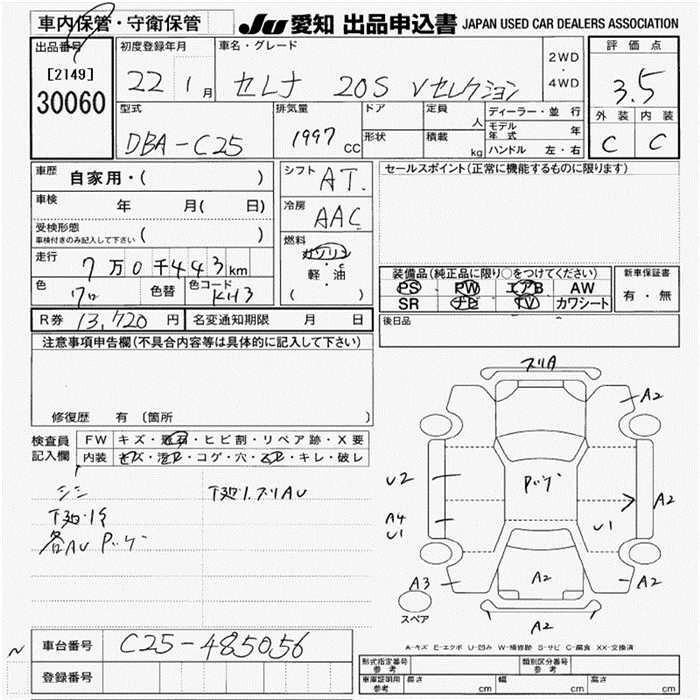 車内保管・守衛保管
JU 愛知 出品申込書 JAPAN USED CAR DEALERS ASSOCIATION
出品番号
[2149]
30060
初度登録年月
22 1月
車名・グレード
セレナ 20S Vセレクション
2WD
・
4WD
評価点
3.5
外装 内装
C C
型式
DBA-C25
排気量
1997 cc
ドア
形状
定員 人
積載 kg
ディーラー・並行
モデル年式 年
ハンドル 左・右
車歴 自家用・( )
車検 年 月( 日)
受検形態
車検付きのみ記入して下さい ( )
走行 7万0千443km
色 クロ 色替 色コード KH3
シフト AT.
冷房 AAC
燃料
ガソリン
・
軽・油
( )
セールスポイント(正常に機能するものに限ります)
装備品(純正品に限り○をつけてください)
PS PW エアB AW
SR ナビ TV カワシート
新車保証書
有・無
後日品
R券 13,720 円 名変通知期限 月 日
注意事項申告欄(不具合内容等は具体的に記入して下さい)
修復歴 有 (箇所
検査員
記入欄
FW キズ・飛石・ヒビ割・リペア跡・X要
内装 キズ・汚レ・コゲ・穴・スレ・キレ・破レ
下廻リスリAU
各AU
スリA
A2
U2
A4
U1
A2
U1
A3
A2
A2
A2
スペア
A-キズ E-エクボ U-凹み W-補修跡 S-サビ C-腐食 XX-交換済
車台番号 C25-485056
登録番号
形式指定番号
参考
類別区分番号
参考
車庫証明用
参考
長さ cm 幅 cm 高さ cm